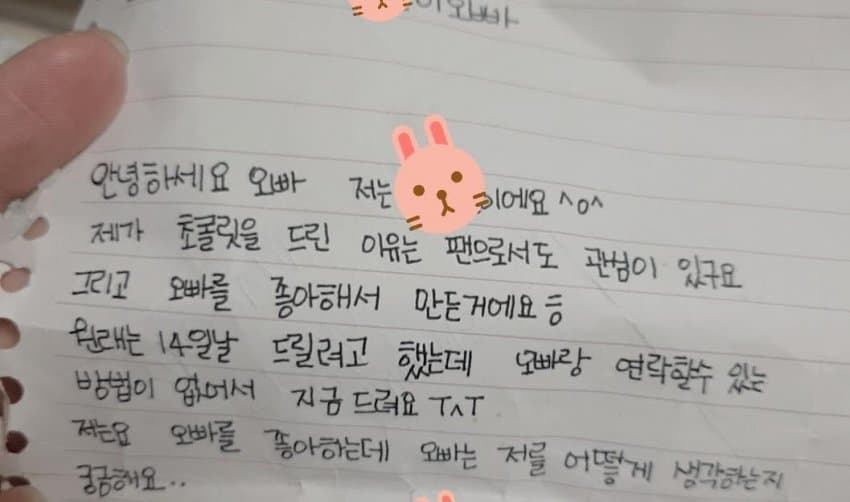 이 오빠
안녕하세요 오빠 저는 이에요 ^o^
제가 초콜릿을 드린 이유는 팬으로서도 관심이 있구요
그리고 오빠를 좋아해서 만든거에요 ㅎ
원래는 14일날 드릴려고 했는데 오빠랑 연락할수 있는
방법이 없어서 지금 드려요 T^T
저는요 오빠를 좋아하는데 오빠는 저를 어떻게 생각하는지
궁금해요..